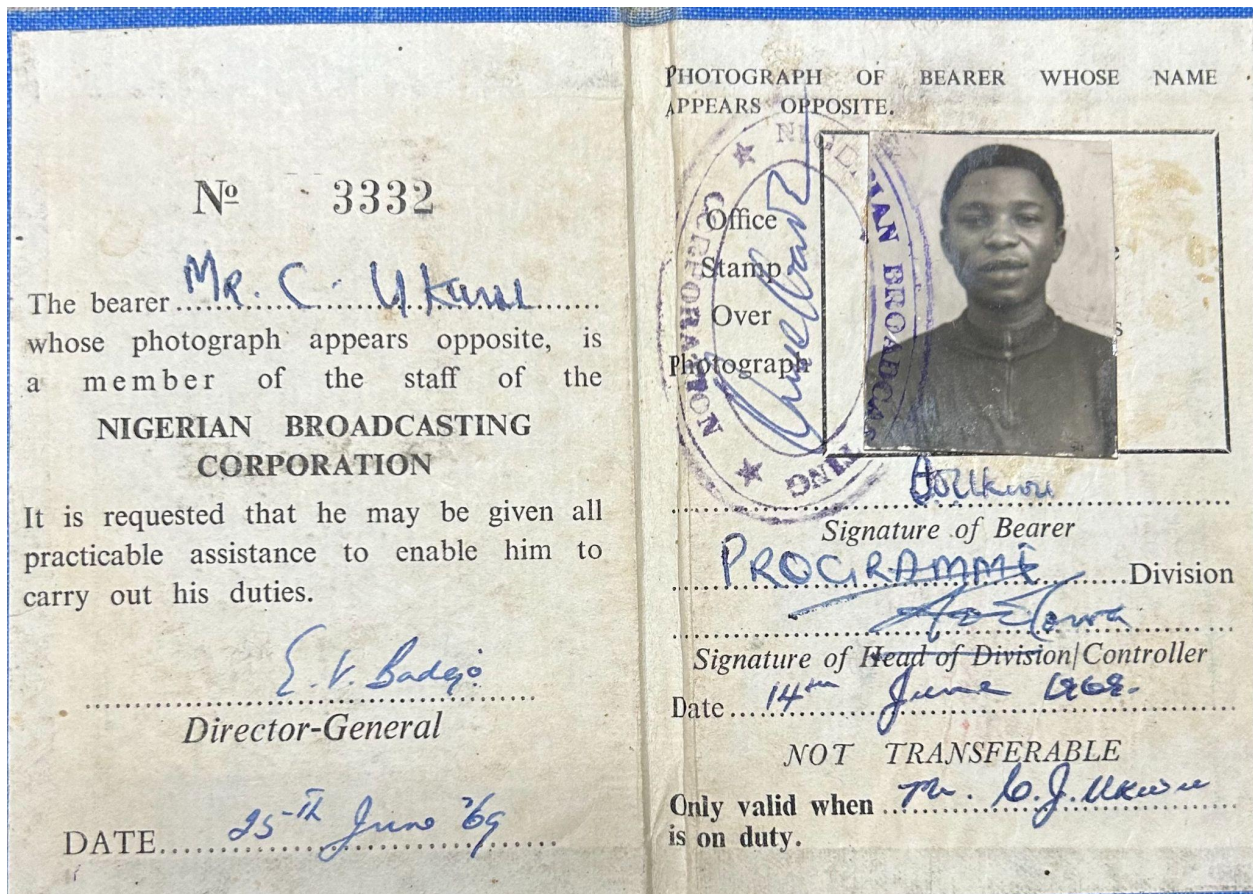 Nº 3332
The bearer Mr. C. Ukwu
whose photograph appears opposite, is
a member of the staff of the
NIGERIAN BROADCASTING
CORPORATION
It is requested that he may be given all
practicable assistance to enable him to
carry out his duties.
E. V. Badejo
Director-General
DATE 25TH June '69
PHOTOGRAPH OF BEARER WHOSE NAME
APPEARS OPPOSITE.
Office
Stamp
Over
Photograph
NIGERIAN BROADCASTING CORPORATION
Ukwu
Signature of Bearer
PROGRAMME Division
Signature of Head of Division/Controller
Date 14th June 1969.
NOT TRANSFERABLE
Only valid when Mr. C. J. Ukwu
is on duty.